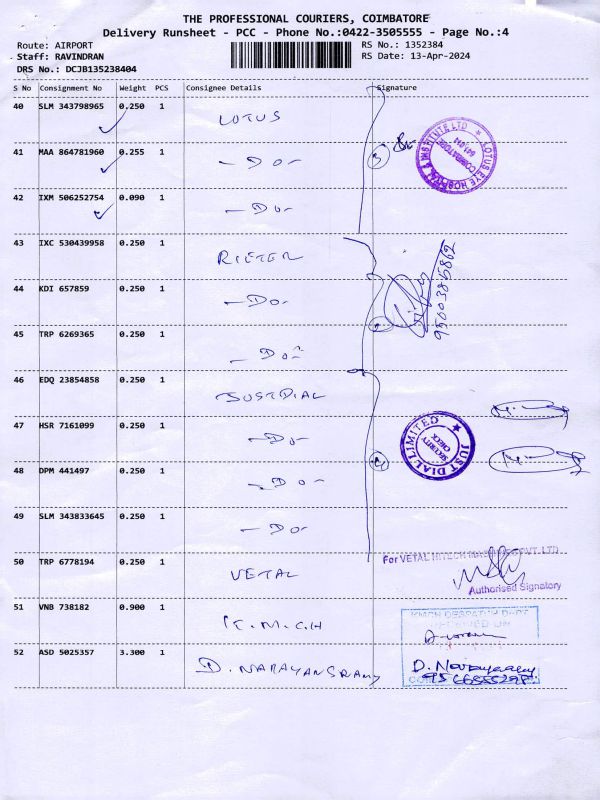 THE PROFESSIONAL COURIERS, COIMBATORE
Delivery Runsheet - PCC - Phone No.:0422-3505555 - Page No.:4
Route: AIRPORT
RS No.: 1352384
Staff: RAVINDRAN
RS Date: 13-Apr-2024
DRS No.: DCJB135238404
S No Consignment No Weight PCS Consignee Details Signature
40 SLM 343798965 0.250 1 LOTUS
LOTUS EYE HOSPITAL & INSTITUTE LTD
COIMBATORE
641 014
41 MAA 864781960 0.255 1 - Do -
42 IXM 506252754 0.090 1 - Do -
43 IXC 530439958 0.250 1 RIETER
9500385862
44 KDI 657859 0.250 1 - Do -
45 TRP 6269365 0.250 1 - Do -
46 EDQ 23854858 0.250 1 JUSTDIAL
47 HSR 7161099 0.250 1 - Do -
JUST DIAL LIMITED
SECURITY
CHECK
48 DPM 441497 0.250 1 - Do -
49 SLM 343833645 0.250 1 - Do -
50 TRP 6778194 0.250 1 VETAL
For VETAL HITECH MACHINES PVT. LTD
Authorised Signatory
51 VNB 738182 0.900 1 K.M.C.H
KMCH DESPATCH DEPT
RECEIVED ON
52 ASD 5025357 3.300 1 D. NARAYANSRAMY